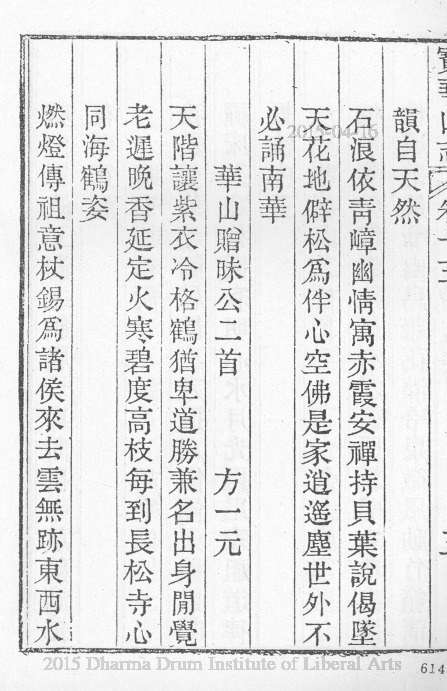 寶華山志 卷十三
韻自天然
石浪依靑嶂幽情寓赤霞安禪持貝葉說偈墜
天花地僻松爲伴心空佛是家逍遙塵世外不
必誦南華
華山贈昧公二首 方一元
天階讓紫衣冷格鶴猶卑道勝兼名出身閒覺
老遲晚香延定火寒碧度高枝每到長松寺心
同海鶴姿
燃燈傳祖意杖錫爲諸侯來去雲無跡東西水
2015-04-16
2015 Dharma Drum Institute of Liberal Arts
614